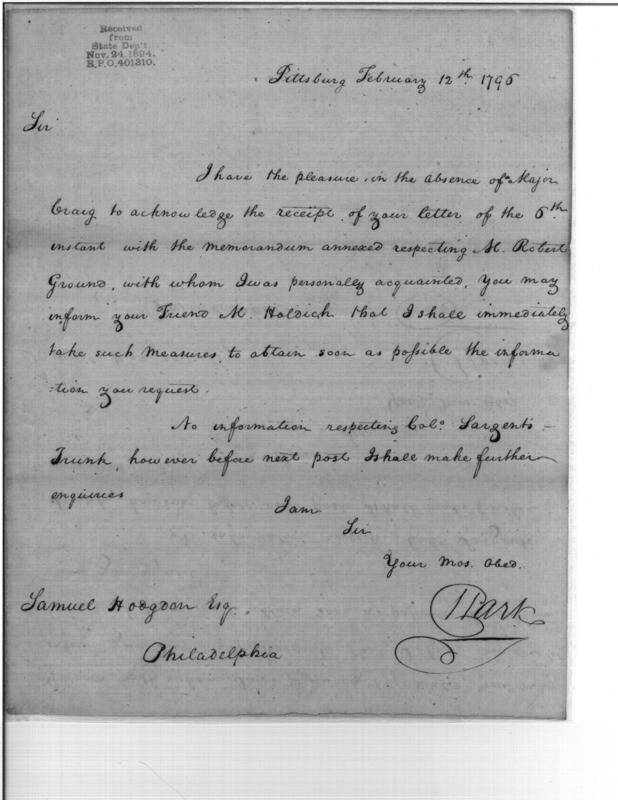 Received
from
State Dep't.
Nov. 24. 1894.
R.P.O. 401310.
Pittsburg February 12th 1796
Sir
I have the pleasure in the absence of Major
Craig to acknowledge the receipt of your letter of the 6th
instant with the memorandum annexed respecting M. Robert
Ground, with whom I was personally acquainted, You may
inform your Friend M. Holdich that I shall immediately
take such measures to obtain soon as possible the informa
-tion you request.
No information respecting Colo. Sargents
Trunk, however before next post I shall make further
enquiries
I am
Sir
Your Mos. Obed.
Park
Samuel Hodgdon Esq.
Philadelphia